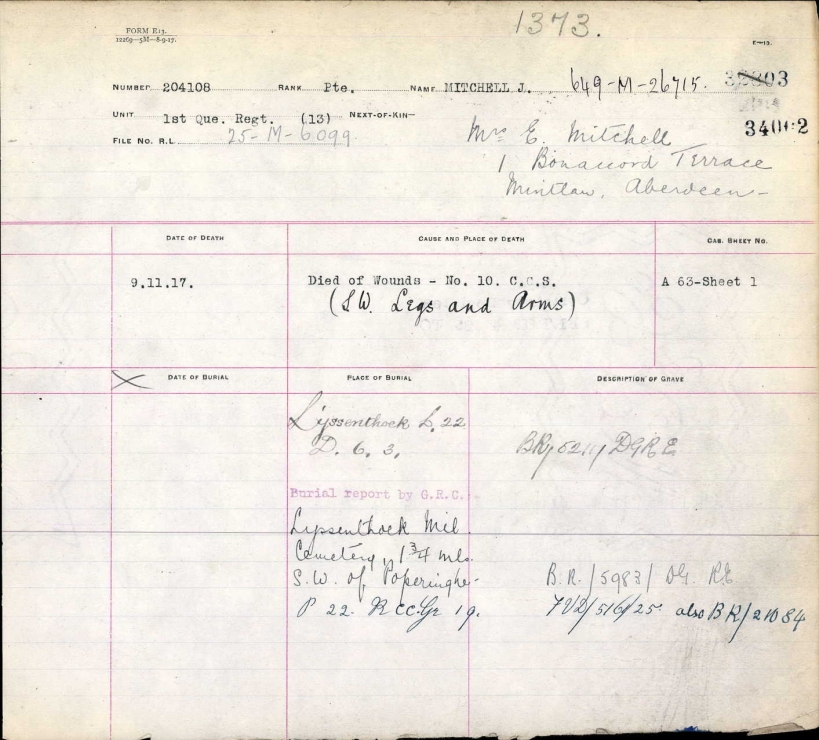 1373.
FORM E13.
12269—5M—8-9-17.
E—13.
NUMBER 204108 RANK Pte. NAME MITCHELL J. 649-M-26715.
UNIT 1st Que. Regt. (13) NEXT-OF-KIN—
34002
FILE NO. R.L. 25-M-6099
Mrs E. Mitchell
1 Bonaccord Terrace
Mintlaw, Aberdeen-
DATE OF DEATH CAUSE AND PLACE OF DEATH CAS. SHEET NO.
9.11.17. Died of Wounds - No. 10. C.C.S. A 63-Sheet 1
(S.W. Legs and Arms)
DATE OF BURIAL PLACE OF BURIAL DESCRIPTION OF GRAVE
Lijssenthock L. 22
D. 6. 3.
DGRE
Burial report by G.R.C.:-
Lyssenthock Mil
Cemetery, 1 3/4 mls.
S.W. of Poperinghe- B.R./5983/ DG. RE
P 22. R CC. Gr 19. 7VD/516/25 also BR/21084